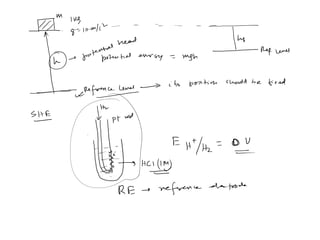 m 1kg
g = 10 m/s²
h → potential head
potential energy = mgh
h₂
Ref level
Reference level → its position should be fixed
SHE
H₂
pt rod
HCl (1M)
E H⁺/H₂ = 0 V
RE → reference electrode